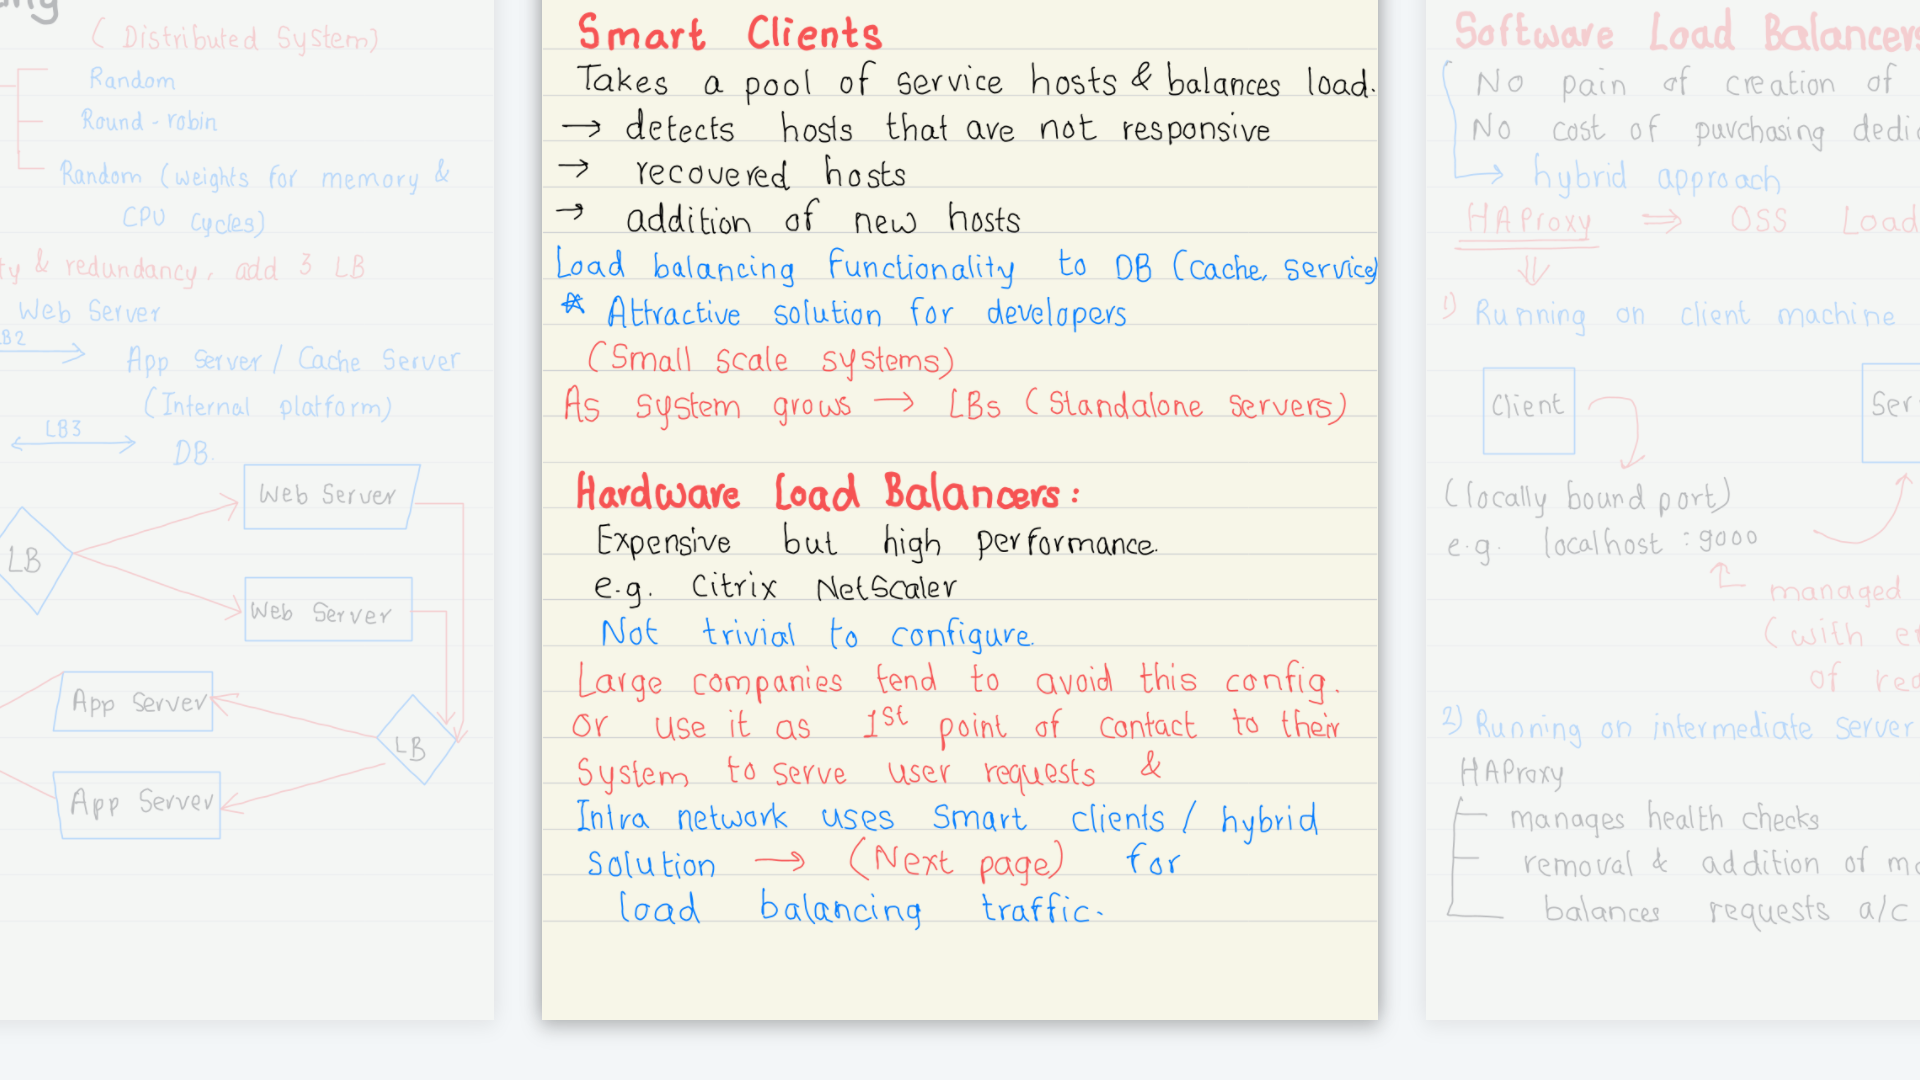 ( Distributed System)
Random
Round-robin
Random (weights for memory &
CPU cycles)
& redundancy, add 3 LB
Web Server
LB2
App Server / Cache Server
(Internal platform)
LB3
DB.
Web Server
LB
Web Server
App Server
LB
App Server
Smart Clients
Takes a pool of service hosts & balances load.
→ detects hosts that are not responsive
→ recovered hosts
→ addition of new hosts
Load balancing functionality to DB (cache, service)
* Attractive solution for developers
(Small scale systems)
As system grows → LBs (Standalone servers)
Hardware Load Balancers:
Expensive but high performance.
e.g. Citrix NetScaler
Not trivial to configure.
Large companies tend to avoid this config.
Or use it as 1st point of contact to their
System to serve user requests &
Intra network uses smart clients / hybrid
solution → (Next page) for
load balancing traffic.
Software Load Balancers
No pain of creation of
No cost of purchasing
→ hybrid approach
HAProxy ⇒ OSS Load
1) Running on client machine
Client
(locally bound port)
e.g. localhost : 9000
managed
(with
of
2) Running on intermediate server
HAProxy
manages health checks
removal & addition of
balances requests a/c